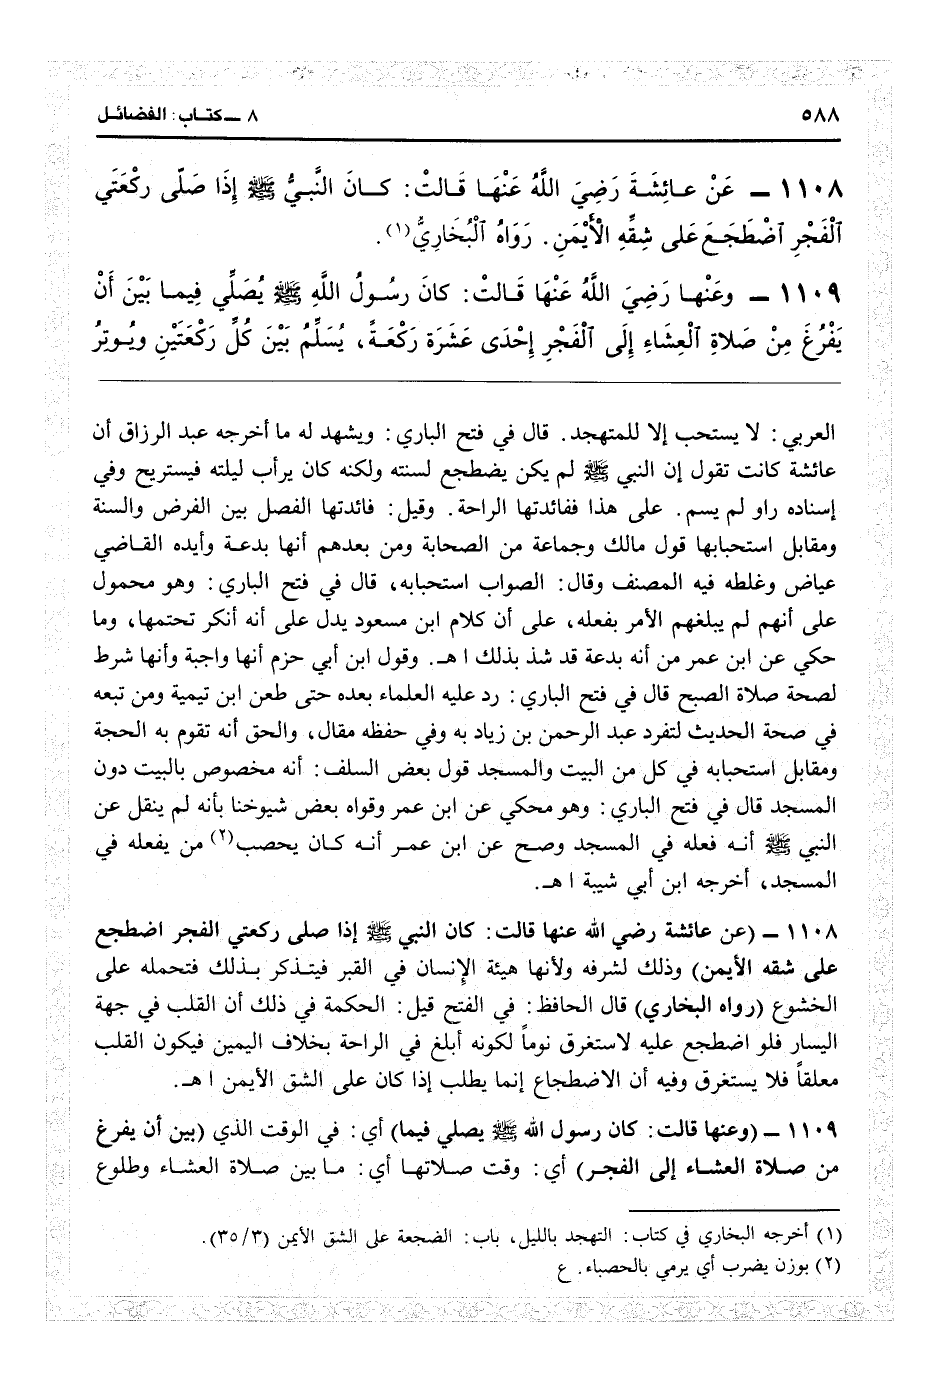 ٥٨٨
٨ ــ كتـاب: الفضائـل
١١٠٨ ــ عَنْ عـائِشَـةَ رَضِيَ اللَّهُ عَنْهَـا قَـالتْ: كـانَ النَّبيُّ ﷺ إِذَا صَلَّى ركْعَتَي
ٱلْفَجْرِ ٱضْطَجَـعَ عَلى شِقِّهِ الأَيْمَنِ. رَوَاهُ ٱلْبُخَارِيُّ(١).
١١٠٩ ــ وعَنْهـا رَضِيَ اللَّهُ عَنْهَا قَـالتْ: كانَ رسُـولُ اللَّهِ ﷺ يُصَلِّي فِيمـا بَيْنَ أَنْ
يَفْرُغَ مِنْ صَلاةِ ٱلْعِشَاءِ إِلَى ٱلْفَجْرِ إِحْدَى عَشَرَة ركْعَـةً، يُسَلِّمُ بَيْنَ كُلِّ رَكْعَتَيْنِ ويُـوتِرُ
العربي: لا يستحب إلا للمتهجد. قال في فتح الباري: ويشهد له ما أخرجه عبد الرزاق أن
عائشة كانت تقول إن النبي ﷺ لم يكن يضطجع لسنته ولكنه كان يرأب ليلته فيستريح وفي
إسناده راو لم يسم. على هذا ففائدتها الراحة. وقيل: فائدتها الفصل بين الفرض والسنة
ومقابل استحبابها قول مالك وجماعة من الصحابة ومن بعدهم أنها بدعـة وأيده القـاضي
عياض وغلطه فيه المصنف وقال: الصواب استحبابه، قال في فتح الباري: وهو محمول
على أنهم لم يبلغهم الأمر بفعله، على أن كلام ابن مسعود يدل على أنه أنكر تحتمها، وما
حكي عن ابن عمر من أنه بدعة قد شذ بذلك ا هـ. وقول ابن أبي حزم أنها واجبة وأنها شرط
لصحة صلاة الصبح قال في فتح الباري: رد عليه العلماء بعده حتى طعن ابن تيمية ومن تبعه
في صحة الحديث لتفرد عبد الرحمن بن زياد به وفي حفظه مقال، والحق أنه تقوم به الحجة
ومقابل استحبابه في كل من البيت والمسجد قول بعض السلف: أنه مخصوص بالبيت دون
المسجد قال في فتح الباري: وهو محكي عن ابن عمر وقواه بعض شيوخنا بأنه لم ينقل عن
النبي ﷺ أنـه فعله في المسجد وصـح عن ابن عمـر أنـه كـان يحصب(٢) من يفعله في
المسجد، أخرجه ابن أبي شيبة ا هـ.
١١٠٨ ــ (عن عائشة رضي الله عنها قالت: كان النبي ﷺ إذا صلى ركعتي الفجر اضطجع
على شقه الأيمن) وذلك لشرفه ولأنها هيئة الإنسان في القبر فيتـذكر بـذلك فتحمله على
الخشوع (رواه البخاري) قال الحافظ: في الفتح قيل: الحكمة في ذلك أن القلب في جهة
اليسار فلو اضطجع عليه لاستغرق نوماً لكونه أبلغ في الراحة بخلاف اليمين فيكون القلب
معلقاً فلا يستغرق وفيه أن الاضطجاع إنما يطلب إذا كان على الشق الأيمن ا هـ.
١١٠٩ ــ (وعنها قالت: كان رسول الله ﷺ يصلي فيما) أي: في الوقت الذي (بين أن يفرغ
من صـلاة العشـاء إلى الفجـر) أي: وقت صـلاتهـا أي: مـا بين صـلاة العشـاء وطلوع
(١) أخرجه البخاري في كتاب: التهجد بالليل، باب: الضجعة على الشق الأيمن (٣٥/٣).
(٢) بوزن يضرب أي يرمي بالحصباء. ع